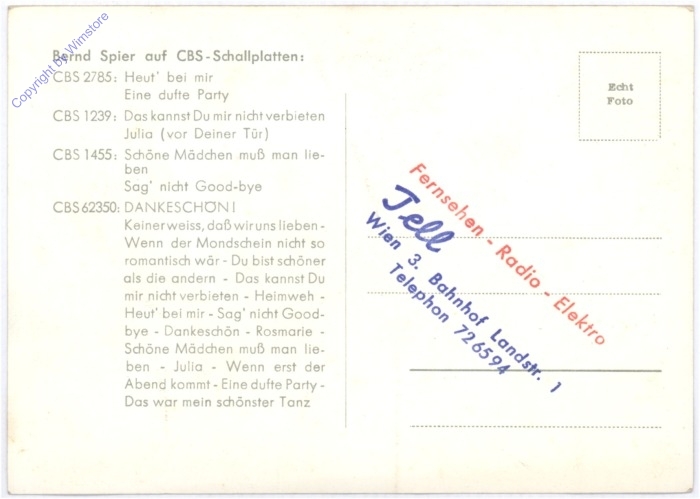 Copyright by Wimstore
Bernd Spier auf CBS-Schallplatten:
CBS 2785: Heut' bei mir
Eine dufte Party
CBS 1239: Das kannst Du mir nicht verbieten
Julia (vor Deiner Tür)
CBS 1455: Schöne Mädchen muß man lie-
ben
Sag' nicht Good-bye
CBS 62350: DANKESCHÖN!
Keiner weiss, daß wir uns lieben -
Wenn der Mondschein nicht so
romantisch wär - Du bist schöner
als die andern - Das kannst Du
mir nicht verbieten - Heimweh -
Heut' bei mir - Sag' nicht Good-
bye - Dankeschön - Rosmarie -
Schöne Mädchen muß man lie-
ben - Julia - Wenn erst der
Abend kommt - Eine dufte Party -
Das war mein schönster Tanz
Echt
Foto
Fernsehen - Radio - Elektro
Tell
Wien 3. Bahnhof Landstr. 1
Telephon 726594